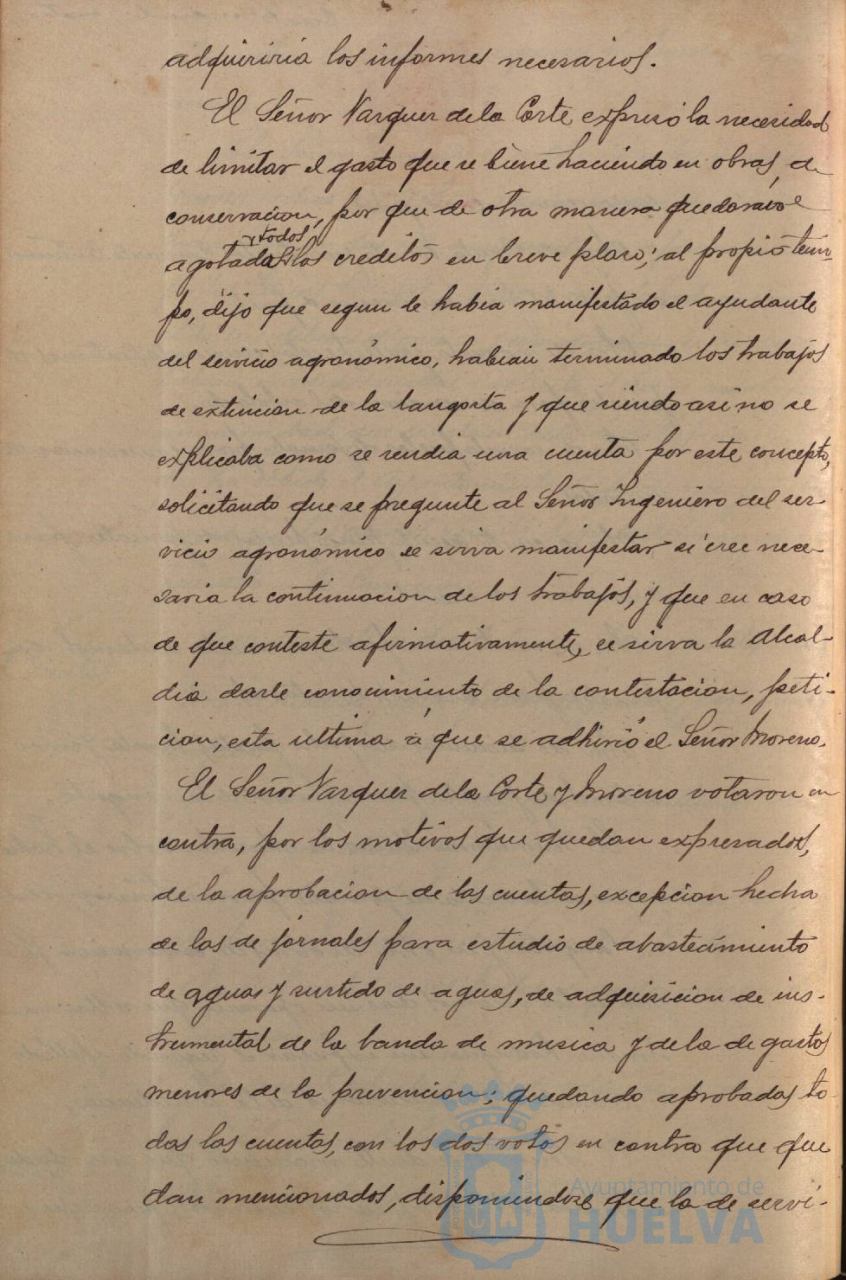 adquiriria los informes necesarios.
El Señor Vazquez de la Corte expresó la necesidad
de limitar el gasto que se biene haciendo en obras de
conservacion, por que de otra manera quedarán
y todos
agotados los creditos en breve plazo; al propio tiem-
po, dijo que segun le habia manifestado el ayudante
del servicio agronómico, habian terminado los trabajos
de extincion de la langosta y que siendo asi no se
explicaba como se rendia una cuenta por este concepto,
solicitando que se pregunte al Señor Ingeniero del ser-
vicio agronómico se sirva manifestar si cree nece-
saria la continuacion de los trabajos, y que en caso
de que conteste afirmativamente, se sirva la Alcal-
dia darle conocimiento de la contestacion, peti-
cion, esta ultima á que se adhirió el Señor Moreno.
El Señor Vazquez de la Corte y Moreno votaron en
contra, por los motivos que quedan expresados,
de la aprobacion de las cuentas, excepcion hecha
de las de jornales para estudio de abastecimiento
de aguas y surtido de aguas, de adquisicion de ins-
trumental de la banda de musica y de la de gastos
menores de la prevencion; quedando aprobadas to-
das las cuentas, con los dos votos en contra que que
dan mencionados, disponiendose que la de servi-
Ayuntamiento de
HUELVA